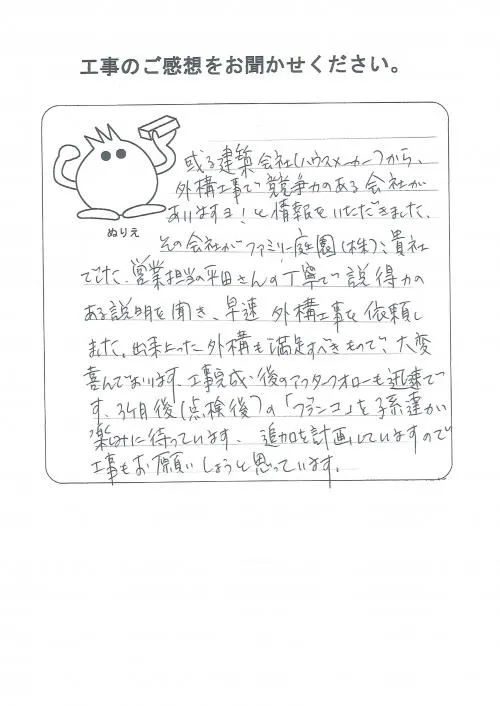 工事のご感想をお聞かせください。
ぬりえ
或る建築会社(ハウスメーカー)から、
外構工事で競争力のある会社が
ありますヨ!と情報をいただきました。
その会社がファミリー庭園(株):貴社
でした。営業担当の平田さんの丁寧で説得力の
ある説明を聞き、早速外構工事を依頼し
ました。出来上った外構も満足すべきもので、大変
喜んでおります。工事完成後のアフターフォローも迅速で
す。3ヶ月後(点検後)の「ブランコ」を子孫達が
楽しみに待っています。追加を計画していますので
工事もお願いしようと思っています。